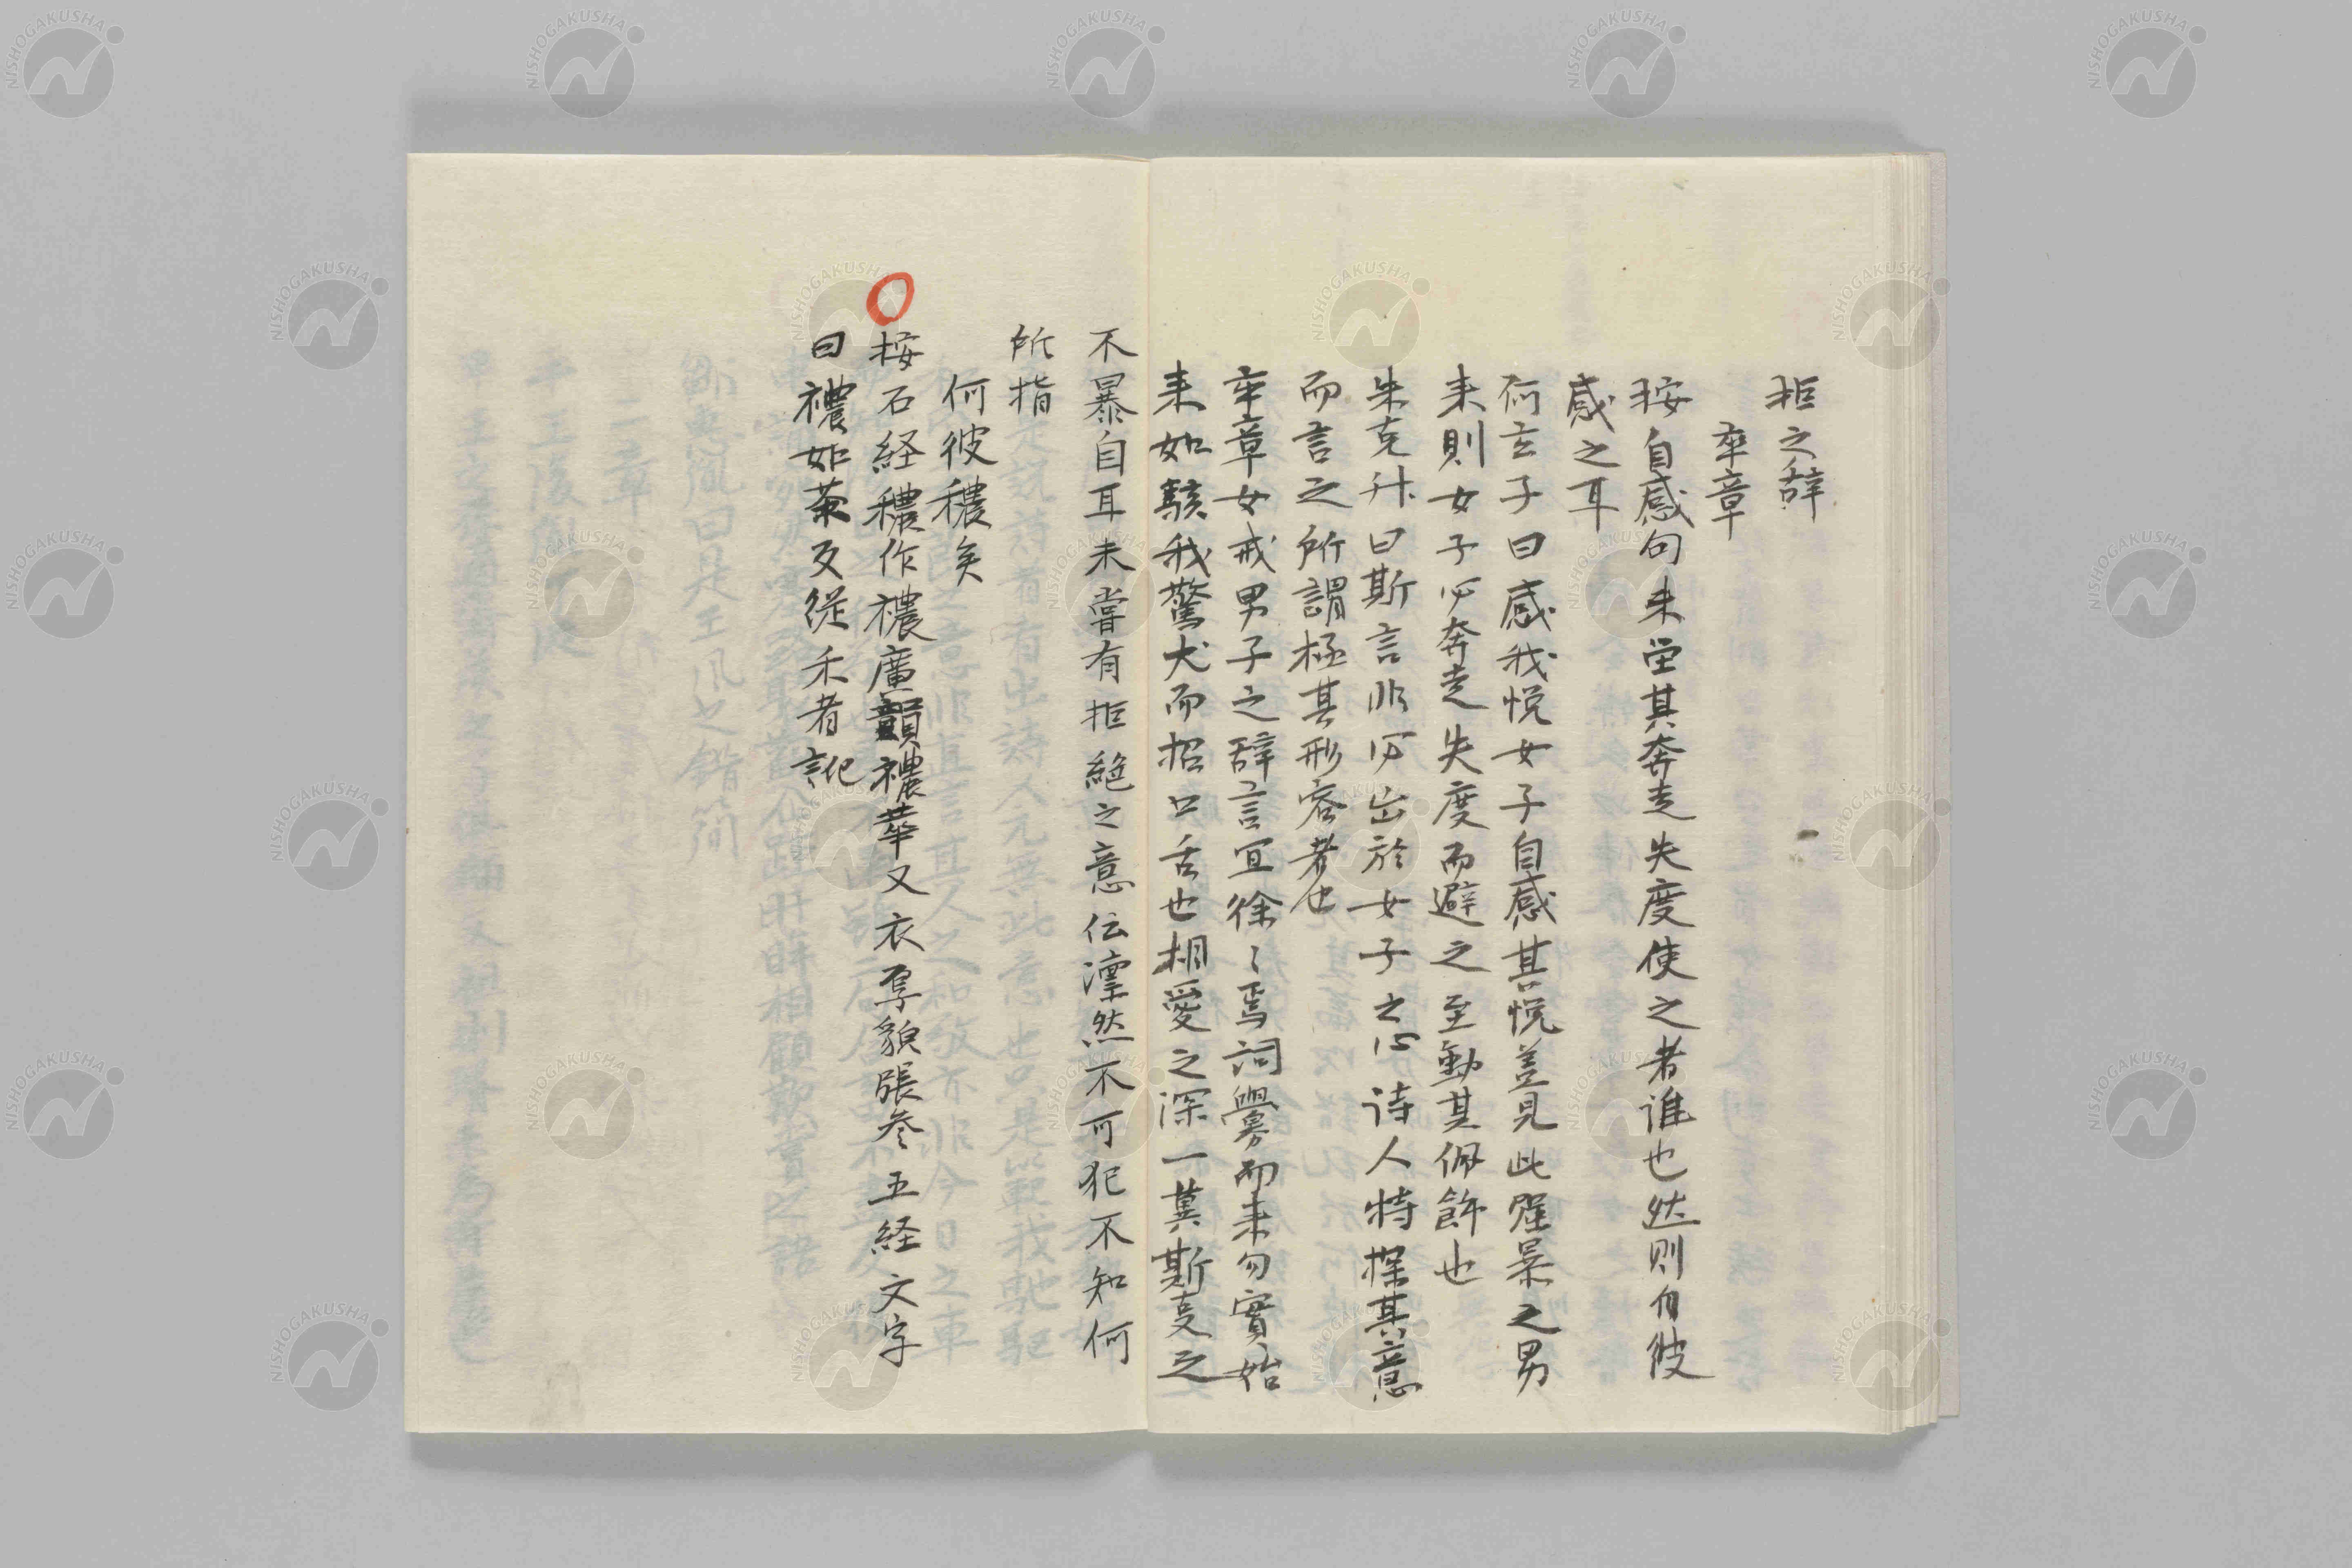 拒之辞
卒章
按自感句未堂其奔走失度使之者誰也然則自彼
感之耳
何玄子曰感我悦女子自感其悦並見此強暴之男
来則女子必奔走失度而避之至動其佩飾也
朱克升曰斯言非必出於女子之心詩人特探其意
而言之所謂極其形容者也
卒章女戒男子之辞言宜徐〻焉詞譽而来勿實始
来如駭我驚犬而招口舌也相愛之深一冀斯叓之
不暴自耳未嘗有拒絶之意伝凜然不可犯不知何
所指
何彼穠矣
按石経穠作禯廣韻禯華又衣厚貌張参五経文字
曰禯如茱反従禾者訛
NISHOGAKUSHA